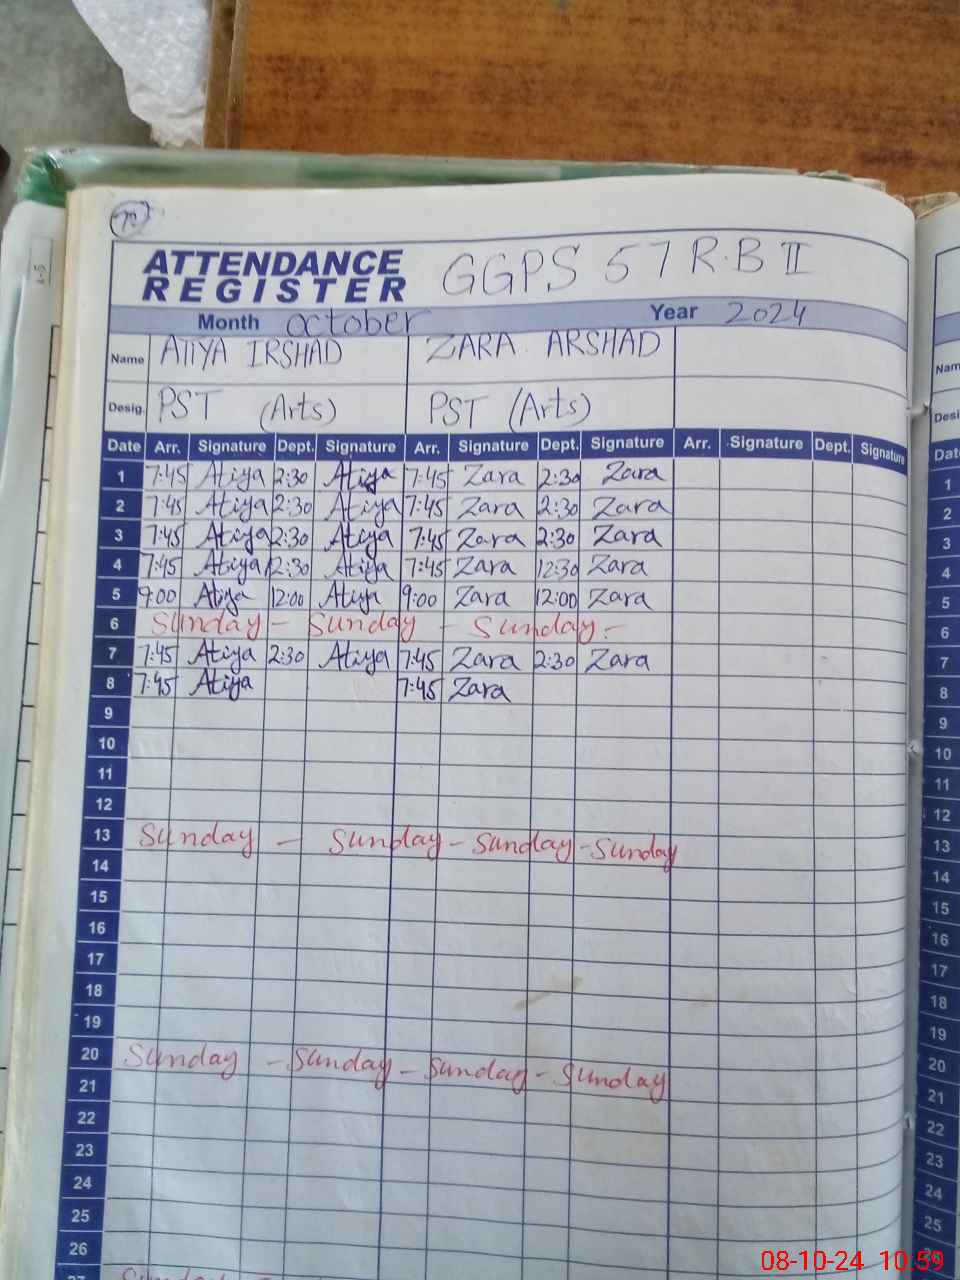 ATTENDANCE REGISTER GGPS 57 R.B II
Month October Year 2024
Name ATIYA IRSHAD ZARA ARSHAD
Desig. PST (Arts) PST (Arts)
Date Arr. Signature Dept. Signature Arr. Signature Dept. Signature Arr. Signature Dept. Signature
1 7:45 Atiya 2:30 Atiya 7:45 Zara 2:30 Zara
2 7:45 Atiya 2:30 Atiya 7:45 Zara 2:30 Zara
3 7:45 Atiya 2:30 Atiya 7:45 Zara 2:30 Zara
4 7:45 Atiya 12:30 Atiya 7:45 Zara 12:30 Zara
5 9:00 Atiya 12:00 Atiya 9:00 Zara 12:00 Zara
6 Sunday - Sunday - Sunday -
7 7:45 Atiya 2:30 Atiya 7:45 Zara 2:30 Zara
8 7:45 Atiya 7:45 Zara
9
10
11
12
13 Sunday - Sunday - Sunday - Sunday
14
15
16
17
18
19
20 Sunday - Sunday - Sunday - Sunday
21
22
23
24
25
26
27 Sunday
Date
1
2
3
4
5
6
7
8
9
10
11
12
13
14
15
16
17
18
19
20
21
22
23
24
25
08-10-24 10:59